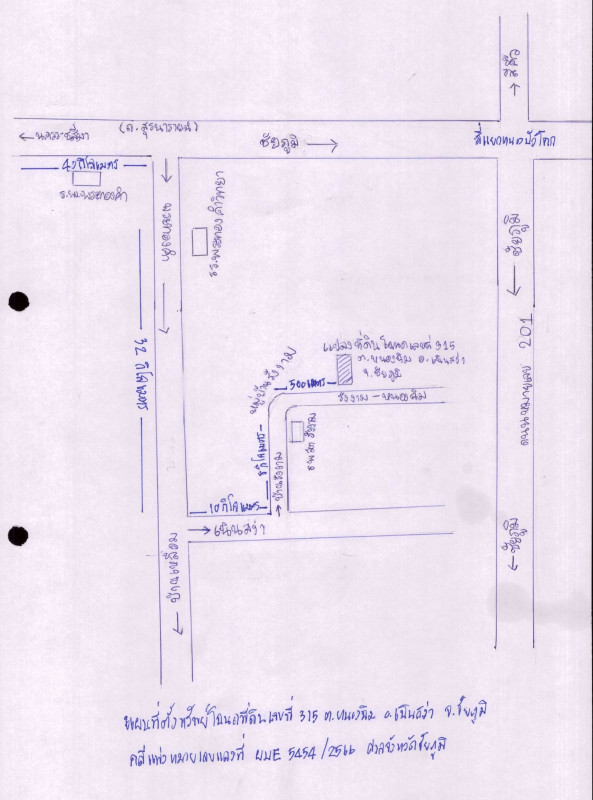 สีคิ้ว
← นครราชสีมา
(ถ.สุรนารายณ์)
ชัยภูมิ →
สี่แยกหนองบัวโคก
4 กิโลเมตร
ร.พ.พระทองคำ
พระทองคำ
รร.พระทองคำวิทยา
32 กิโลเมตร
ชัยภูมิ
ถนนหมายเลข 201
แปลงที่ดินโฉนดเลขที่ 315
ต.หนองฉิม อ.เนินสง่า
จ.ชัยภูมิ
500 เมตร
หมู่บ้านรังงาม
รังงาม - หนองฉิม
8 กิโลเมตร
บ้านรังงาม
รพ.สต รังงาม
10 กิโลเมตร
→ เนินสง่า
บ้านเหลื่อม
← ชัยภูมิ
แผนที่ตั้งทรัพย์โฉนดที่ดินเลขที่ 315 ต.หนองฉิม อ.เนินสง่า จ.ชัยภูมิ
คดีแพ่งหมายเลขแดงที่ ผบE 5454/2566 ศาลจังหวัดชัยภูมิ